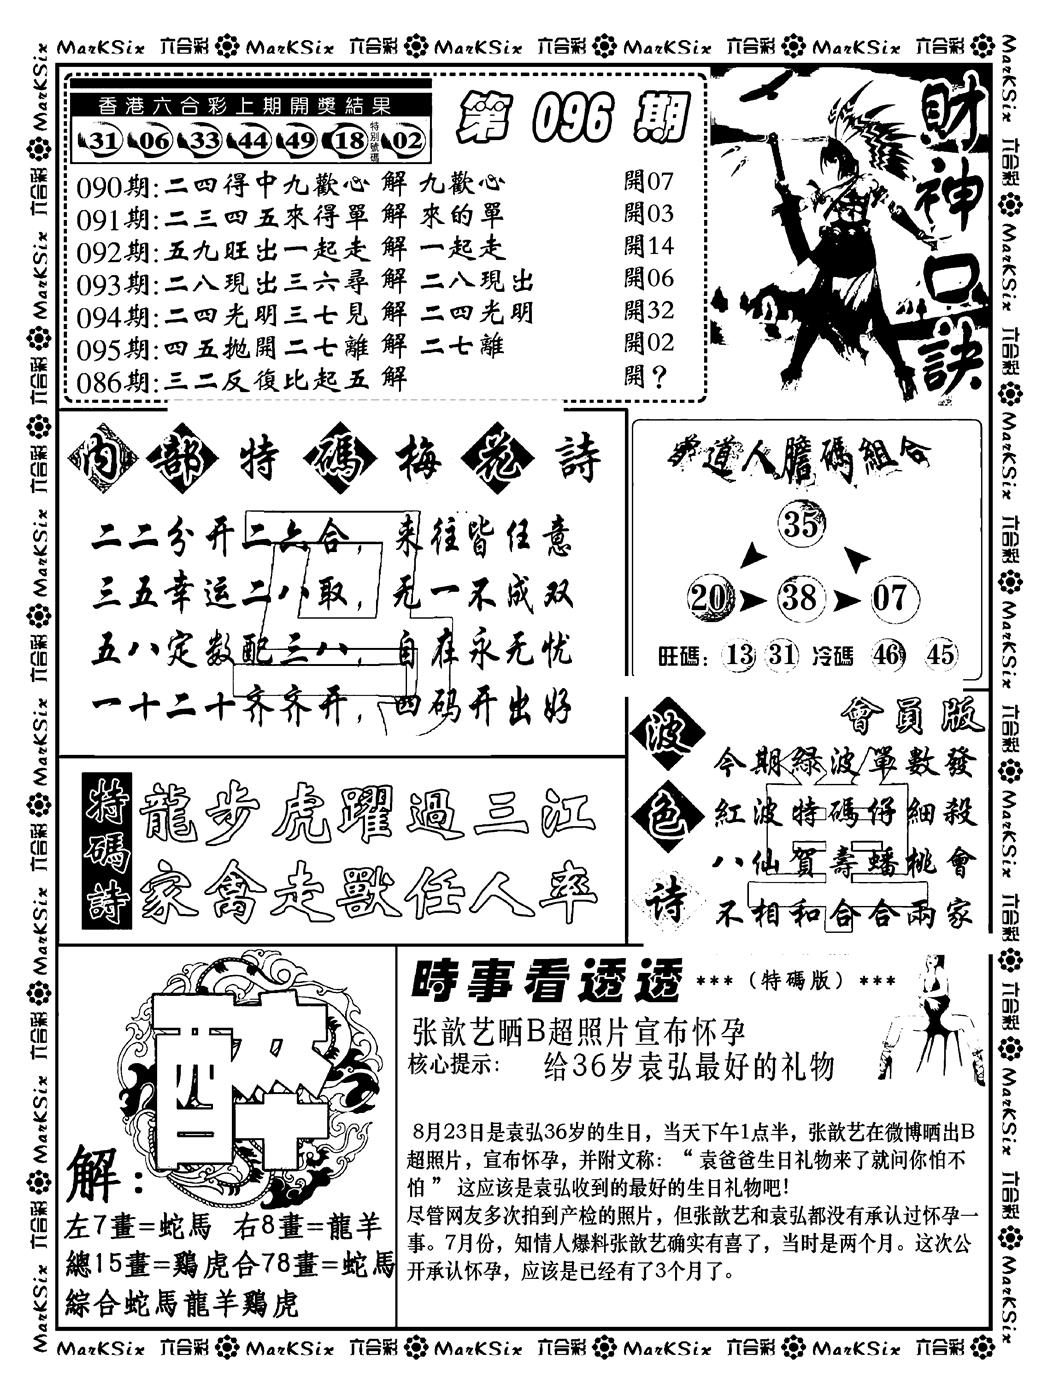 MarKSix 六合彩 MarKSix 六合彩 MarKSix 六合彩 MarKSix 六合彩 MarKSix 六合彩
香港六合彩上期開獎結果
31 06 33 44 49 18 特別號碼 02
第 096 期
090期:二四得中九歡心 解 九歡心 開07
091期:二三四五來得單 解 來的單 開03
092期:五九旺出一起走 解 一起走 開14
093期:二八現出三六尋 解 二八現出 開06
094期:二四光明三七見 解 二四光明 開32
095期:四五拋開二七離 解 二七離 開02
086期:三二反復比起五 解 開?
財神口訣
内部特碼梅花詩
二二分开二六合，来往皆任意
三五幸运二八取，无一不成双
五八定数配三八，自在永无忧
一十二十齐齐开，四码开出好
道人膽碼組合
35
20 38 07
旺碼：13 31 冷碼 46 45
波色诗
會員版
今期綠波單數發
紅波特碼仔細殺
八仙賀壽蟠桃會
不相和合合兩家
特碼詩
龍步虎躍過三江
家禽走獸任人率
醉
解：
左7畫=蛇馬 右8畫=龍羊
總15畫=鷄虎合78畫=蛇馬
綜合蛇馬龍羊鷄虎
時事看透透 ***（特碼版）***
张歆艺晒B超照片宣布怀孕
核心提示: 给36岁袁弘最好的礼物
8月23日是袁弘36岁的生日，当天下午1点半，张歆艺在微博晒出B
超照片，宣布怀孕，并附文称：“袁爸爸生日礼物来了就问你怕不
怕” 这应该是袁弘收到的最好的生日礼物吧!
尽管网友多次拍到产检的照片，但张歆艺和袁弘都没有承认过怀孕一
事。7月份，知情人爆料张歆艺确实有喜了，当时是两个月。这次公
开承认怀孕，应该是已经有了3个月了。
MarKSix 六合彩 MarKSix 六合彩 MarKSix 六合彩 MarKSix 六合彩 MarKSix 六合彩